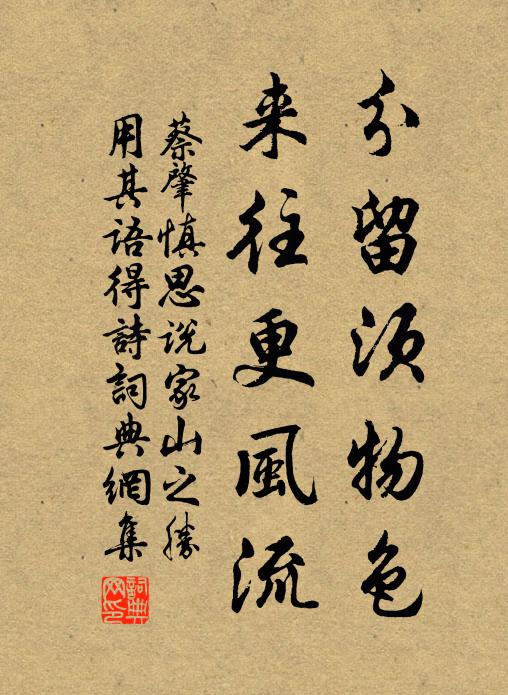 分留須物色
来往更風流
蔡肇慎思说家山之勝
用其语得詩詞典網集
詞典网印